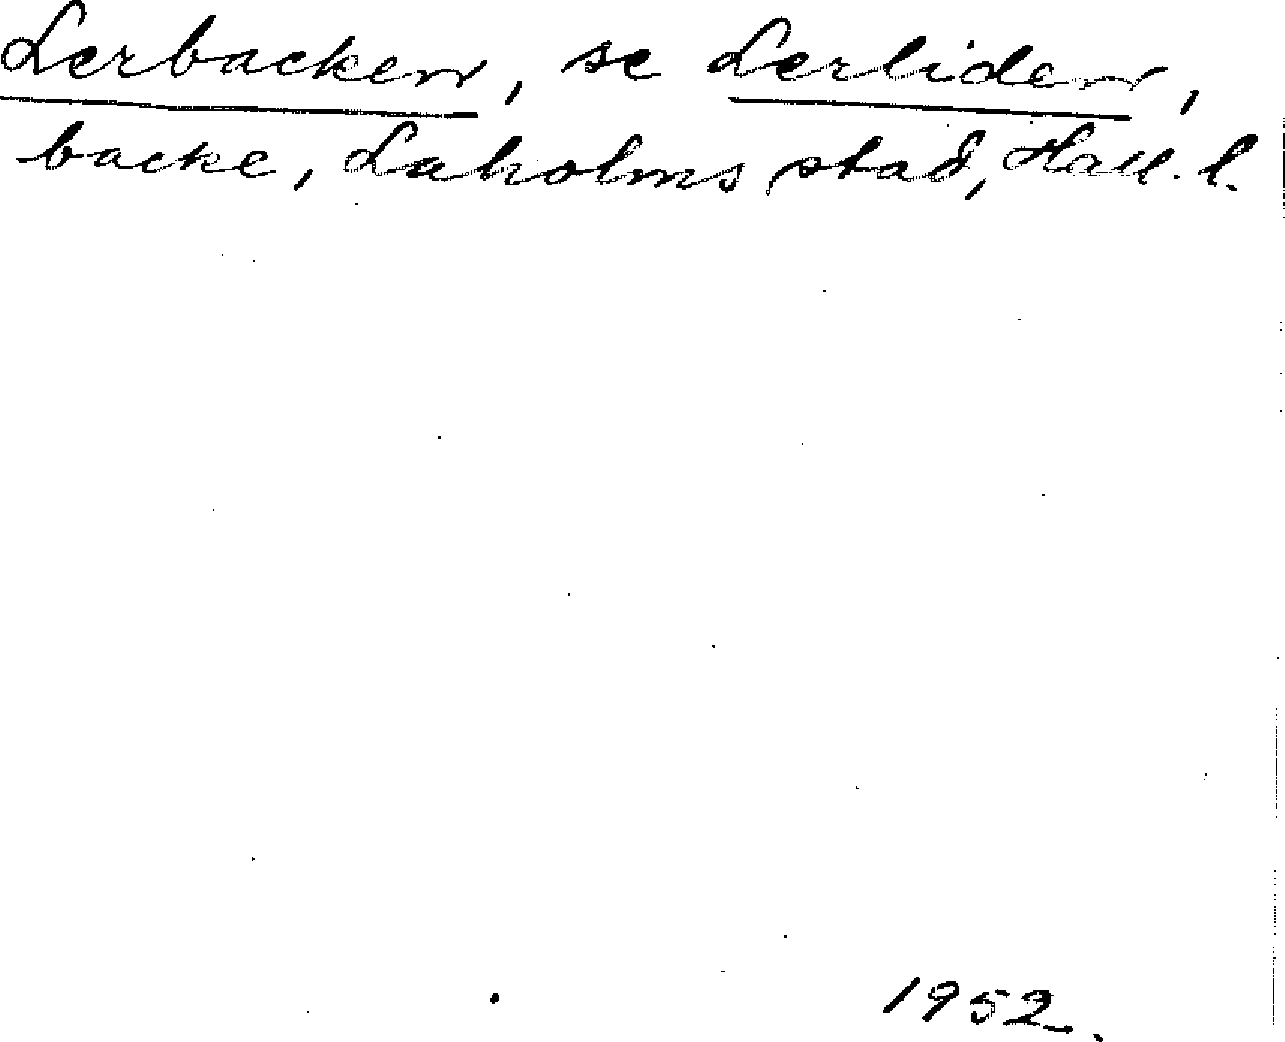 Lerbacken, se Lerliden,
backe, Laholms stad, Hall. l.
1952.